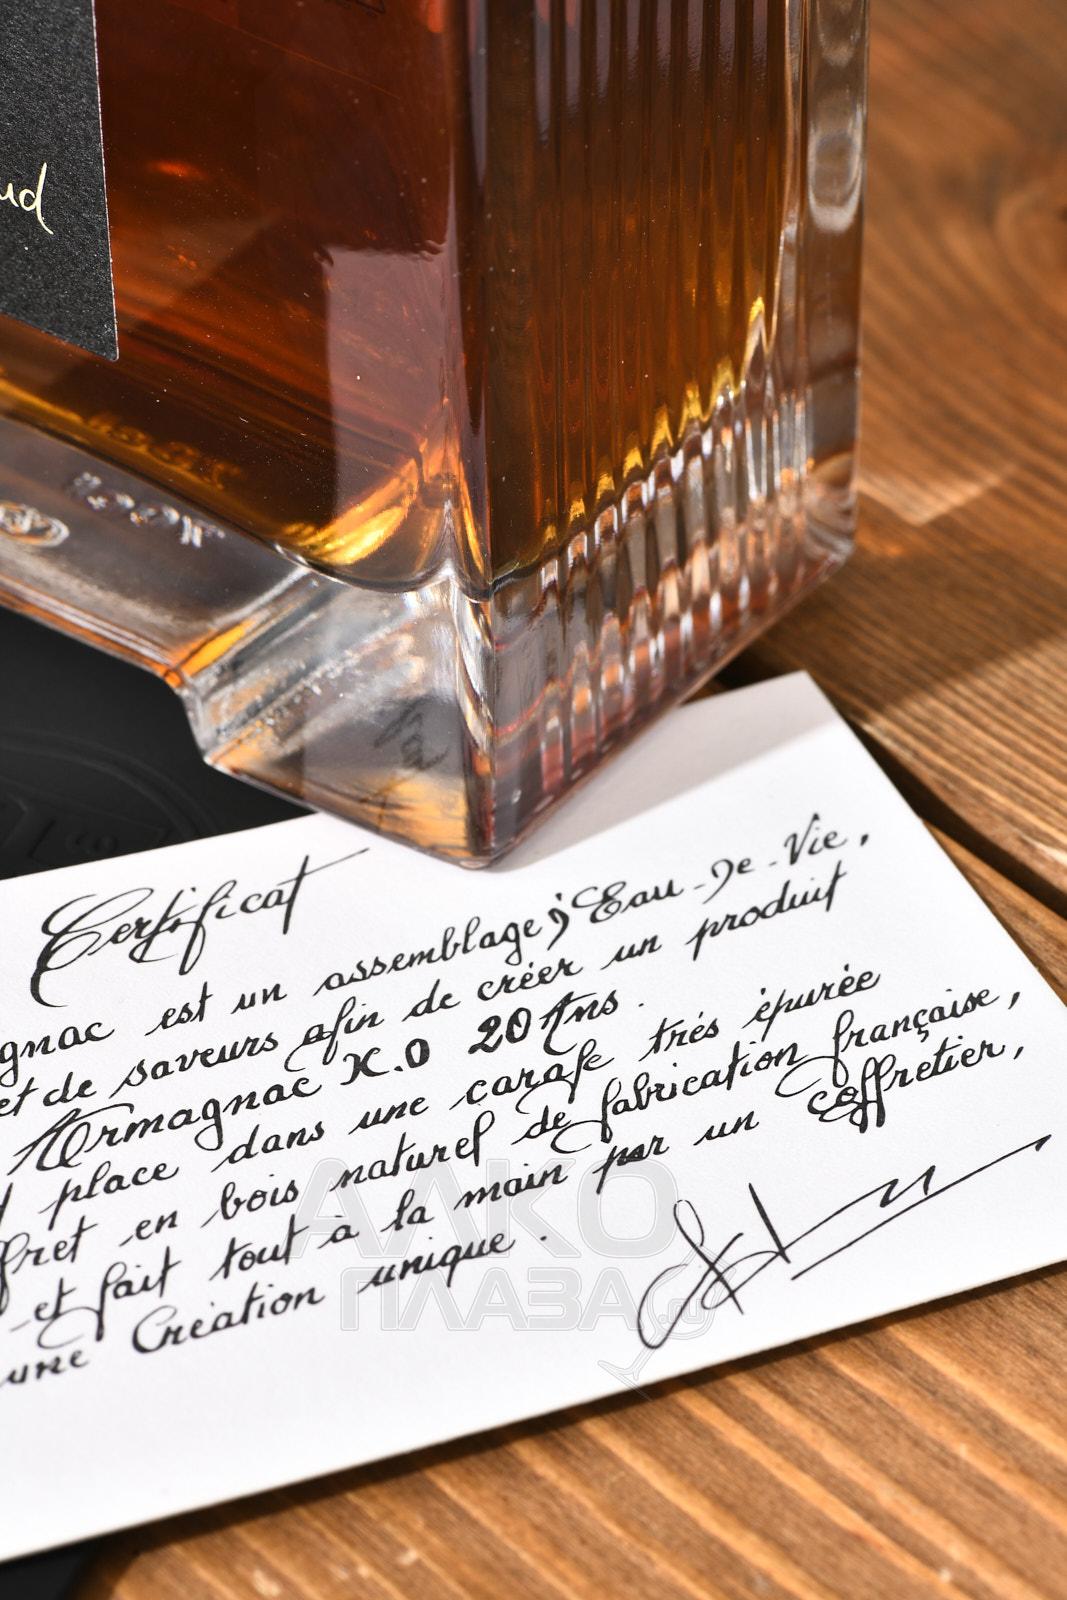 ud
Certificat
gnac est un assemblage d'Eau-De-Vie,
et de saveurs afin de créer un produit
Armagnac X.O 20 Ans.
place dans une carafe trés épurée
ffret en bois naturel de fabrication française,
et fait tout à la main par un coffretier,
une Création unique.
АЛКО
ПЛАЗА.ru